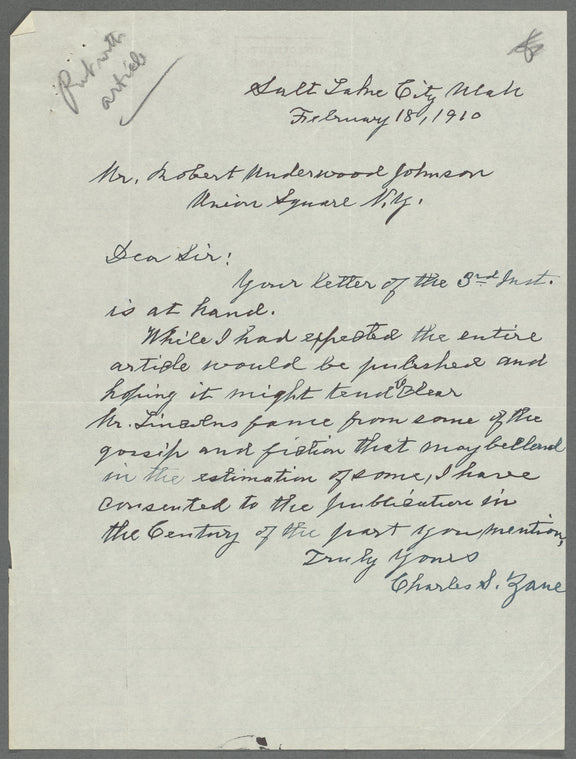 Put with
article
Salt Lake City Utah
February 18, 1910
Mr. Robert Underwood Johnson
Union Square N.Y.
Dear Sir:
Your letter of the 3rd Inst.
is at hand.
While I had expected the entire
article would be published and
hoping it might tend to clear
Mr. Lincolns fame from some of the
gossip and fiction that may becloud
in the estimation of some, I have
consented to the publication in
the Century of the part you mention,
Truly Yours
Charles S. Zane